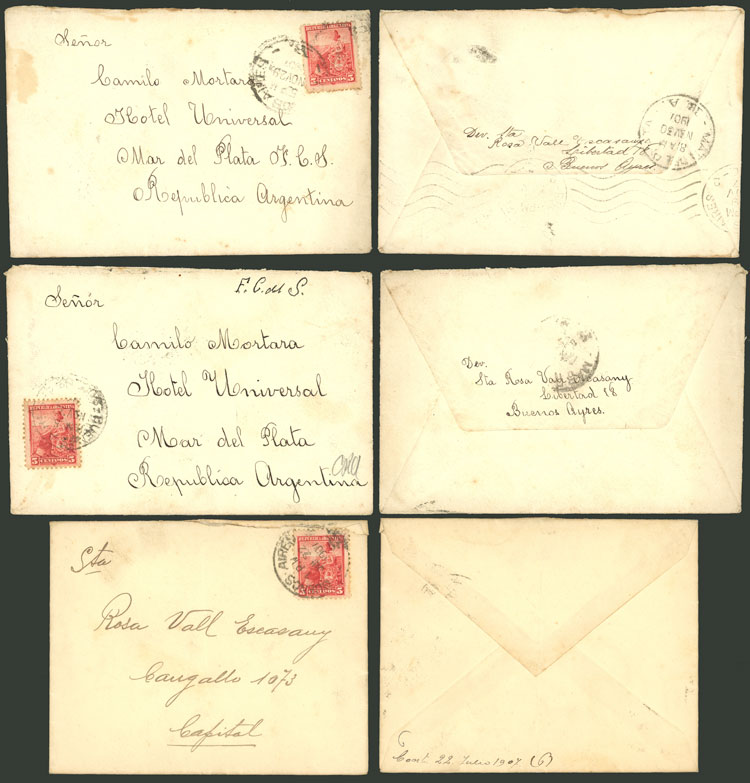 Señor
Camilo Mortara
Hotel Universal
Mar del Plata F.C.S.
Republica Argentina
5 CENTAVOS 5
Dev. Sta
Rosa Vall Escasany
Libertad
Buenos Ayres
1901
F. C. del S.
Señor
Camilo Mortara
Hotel Universal
Mar del Plata
Republica Argentina
5 CENTAVOS 5
Dev.
Sta Rosa Vall Escasany
Libertad 18
Buenos Ayres.
Sta
Rosa Vall Escasany
Cangallo 1073
Capital
BUENOS AIRES
5 CENTAVOS 5
Cont. 22 Julio 1907 (6)